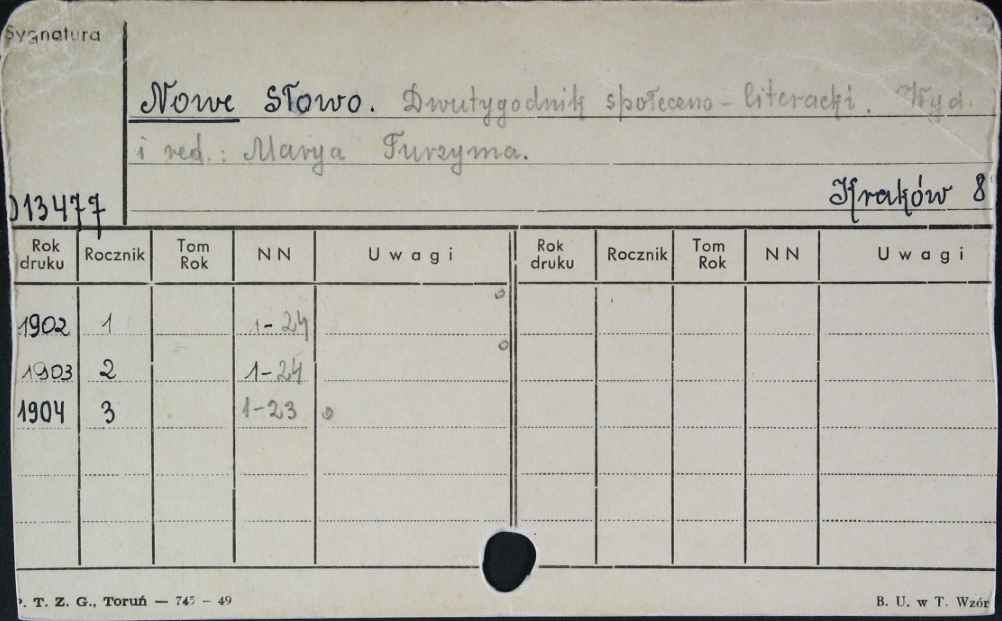 Sygnatura
Nowe Słowo. Dwutygodnik społeceno-literacki. Wyd.
i red.: Marya Turzyma.
Kraków 8°
013477
Rok druku Rocznik Tom Rok NN Uwagi Rok druku Rocznik Tom Rok NN Uwagi
1902 1 1-24
1903 2 1-24
1904 3 1-23
P. T. Z. G., Toruń — 745 – 49 B. U. w T. Wzór